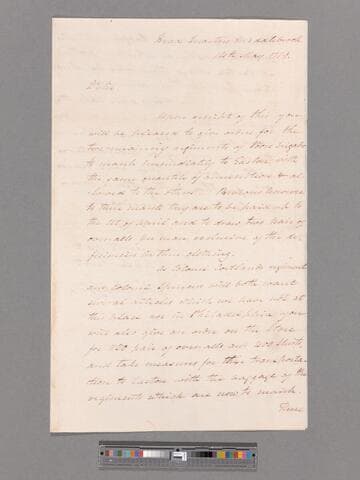 Head Quarters Middlebrook
May 1779.
D. Sir
Upon receipt of this you
will be pleased to give orders for the
two remaining regiments of Poors brigade
to march immediately to Easton with
the same quantity of ammunition
to the others. Previous
to their march they are to be paid up to
the 1st of April and to draw two pair of
overalls per man exclusive of the de
ficiencies in their clothing.
As Colonel Cortlands regiment
and Colonel Spencers will both want
several articles which we have not at
this place nor in Philadelphia you
will also give an order on the Store
for 850 pair of overalls and 408 shirts,
and take measures for their transporta
tion to Easton with the baggage of the
regiments which are now to march.